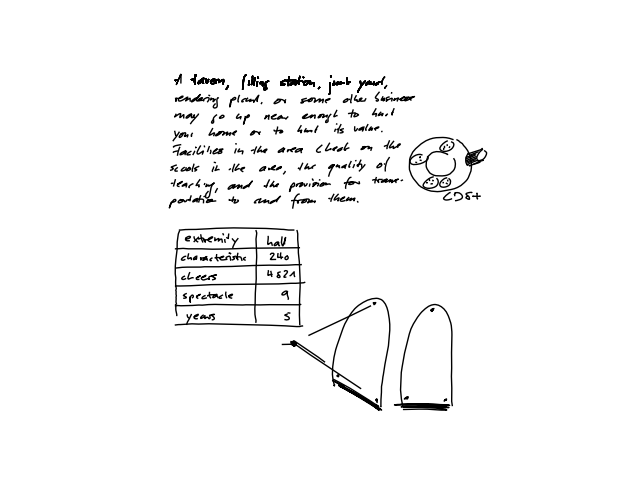 A tavern, filling station, junk yard,
rendering pland, or some other business
may go up near enough to hurt
your home or to hurt its value.
Facilities in the area Check on the
scools in the area, the quality of
teaching, and the provision for trans-
portation to and from them.
CD8+
extremity hall
characteristic 240
cheers 4821
spectacle 9
years 5